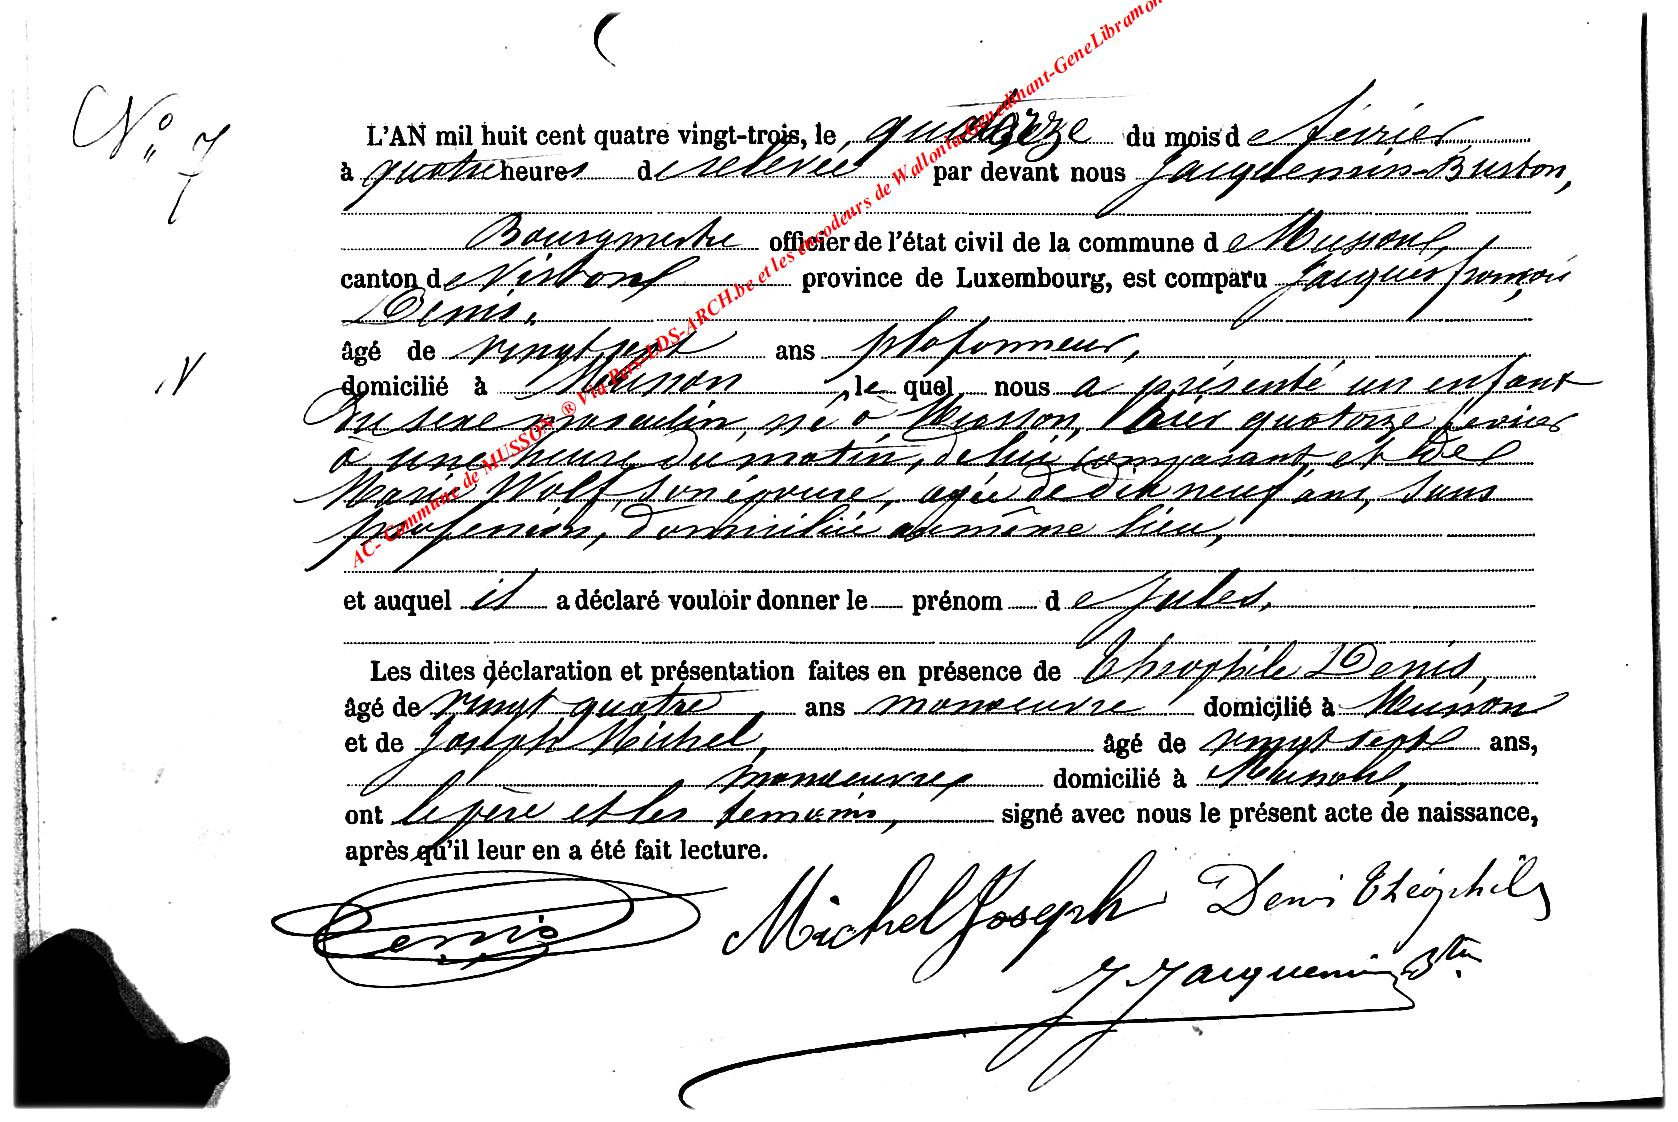 N° 7
L'AN mil huit cent quatre vingt-trois, le quinze du mois de février
à quatre heures de relevée par devant nous Jacquemin-Burton,
Bourgmestre officier de l'état civil de la commune de Musson,
canton de Virton province de Luxembourg, est comparu Jacques françois
Denis,
âgé de vingt sept ans plafonneur,
domicilié à Musson, le quel nous a présenté un enfant
du sexe masculin, né à Musson, hier quatorze février
à une heure du matin, de lui comparant et de
Marie Wolff, son épouse, agée de dix neuf ans, sans
profession, domiciliée au même lieu,
N
et auquel il a déclaré vouloir donner le prénom de Jules,
Les dites déclaration et présentation faites en présence de Théophile Denis,
âgé de vingt quatre ans manoeuvre domicilié à Musson
et de Joseph Michel, âgé de vingt sept ans,
manoeuvre, domicilié à Musson,
ont le père et les temoins, signé avec nous le présent acte de naissance,
après qu'il leur en a été fait lecture.
Denis Michel Joseph Denis Théophile
J Jacquemin Btn
AC- Commune de MUSSON ® Via Pers-LDS-ARCH.be et les encodeurs de Wallonia-Genedinant-GeneLibramon